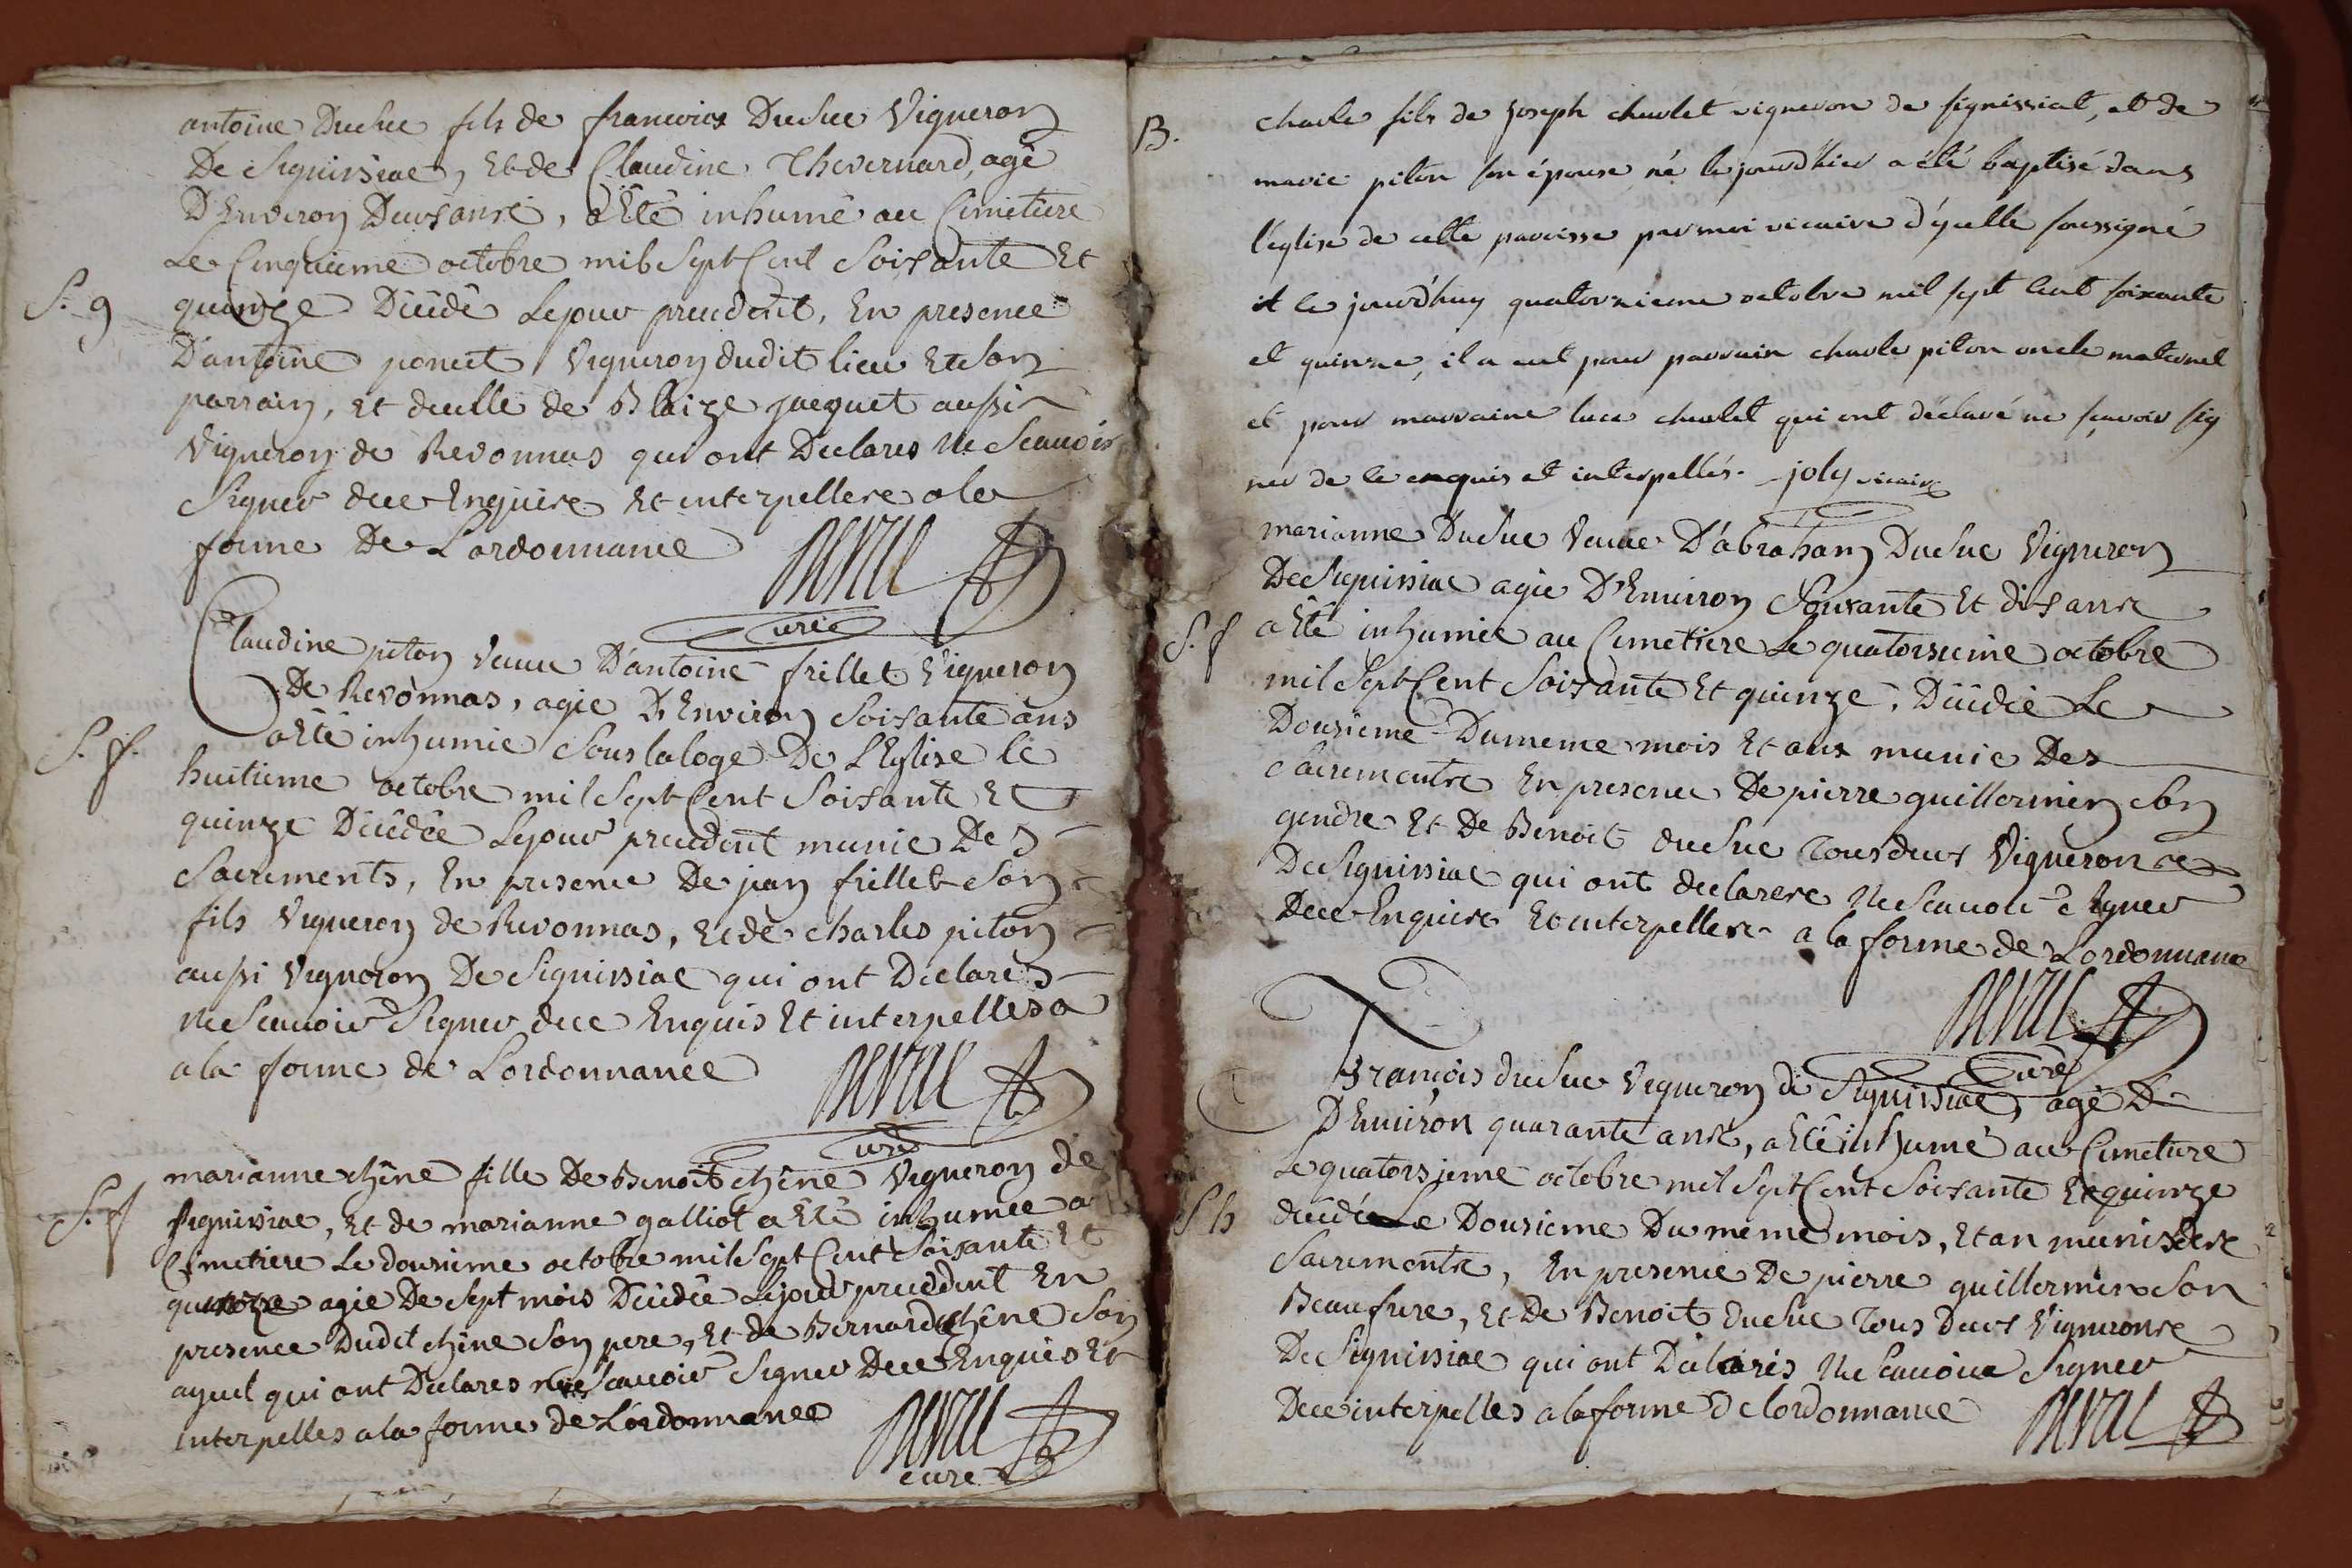 antoine Dusuc fils de francoics Dusuc Vigneron
De Siguissiac, Et de Claudine Thevernard, agé
D'Environ Deux ans, a Eté inhumé au Cimetiere
Le Cinquieme octobre mil Sept Cent Soixante Et
S. g quinze Décédé Le jour precedent, En presence
D'antoine poncet Vigneron dudit lieu Et son
parrain, et de celle de Blaize jacquet aussi
Vigneron de Revonnas qui ont Declares Ne Scauoir
Signer de ce Enquise Et interpellese a la
forme De L'ordonnance
curé
Claudine piton Veuue D'antoine frillet Vigneron
De Revonnas, agée D'Environ Soixante ans
S. f. a Eté inhumée Sous la loge De L'Eglise le
huitieme octobre mil Sept Cent Soixante Et
quinze Décédée Le jour precedent munie Des
Sacrements, En presence De jean frillet Son
fils Vigneron de Revonnas, Et de charles piton
aussi Vigneron De Siguissiac qui ont Declares
Ne Scauoir Signer de ce Enquis Et interpelles a
a la forme de L'ordonnance
curé
marianne chêne fille De Benoit chêne Vigneron de
S. f Siguissiac, Et de marianne galliot a Eté inhumée a
Cimetiere Le dousieme octobre mil Sept Cent Soixante Et
agée De Sept mois Décédée Le jour precedent En
presence Dudit chêne Son pere, Et de Bernard chêne Son
ayeul qui ont Declares ne Scauoir Signer De ce Enquis Et
interpelles a la forme de L'ordonnance
curé
B. charle fils de joseph charlet vigneron de signissiat, et de
marie piton son épouse né le jourd'hier a été baptisé dans
l'église de cette paroisse par moi vicaire d'ycelle soussigné
et le jourd'huy quatorzieme octobre mil sept cent soixante
et quinze, il a eut pour parrain charle piton oncle maternel
et pour marraine luce charlet qui ont déclaré ne sçavoir sig
ner de ce enquis et interpellés. joly vicaire
marianne Dusuc Veuue D'abraham Dusuc Vigneron
De Siguissiac agée D'Enuiron Soixante Et dix anse
S. f a Eté inhumée au Cimetiere Le quatorsieme octobre
mil Sept Cent Soixante Et quinze, Décédée Le
Dousieme Du meme mois Et ans munie Des
Sacrementse En presence De pierre guillermin Son
gendre Et De Benoit dusuc Tous deux Vigneron
De Siguissiac qui ont declarese Ne Scauoir Signer
De ce Enquise Et interpellese a la forme de L'ordonnance
curé
François dusuc Vigneron de Siguissiac, agé D
D'Enuiron quarante anse, a Eté inhumé au Cimetiere
Le quatorsieme octobre mil Sept Cent Soixante Et quinze
S h décédé Le Dousieme Du meme mois, Et an munis dese
Sacrementse, En presence De pierre guillermin Son
Beaufrere, Et De Benoit Dusuc Tous Deux Vigneronse
De Siguissiac qui ont Declarés Ne Scauoir Signer
De ce interpelles a la forme de lordonnance